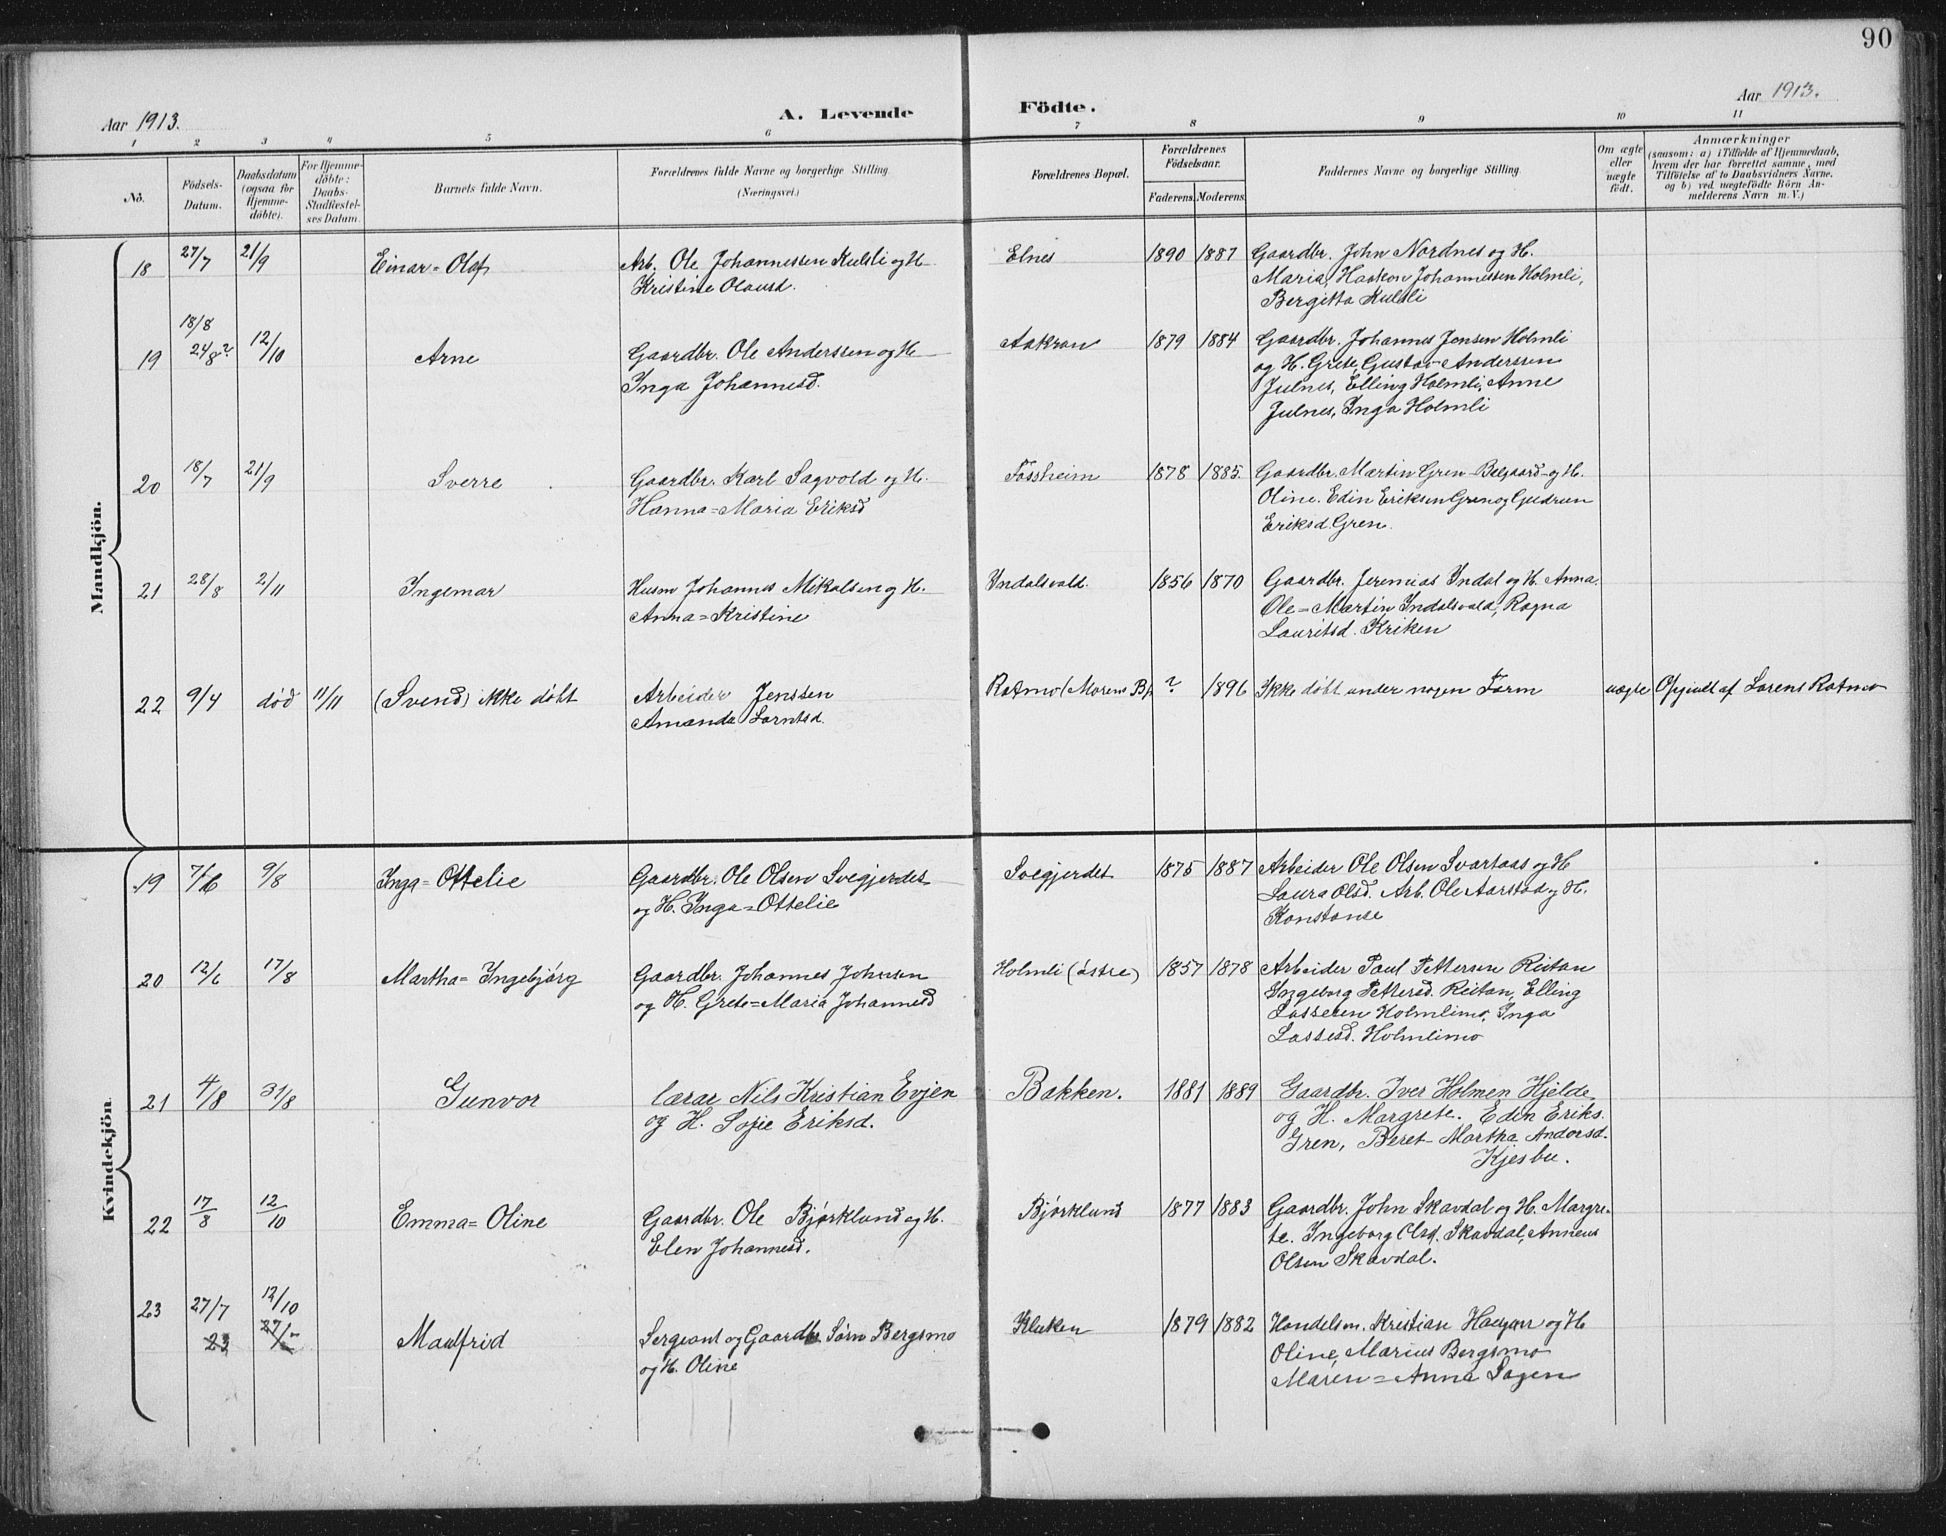 90
Aar 1913.
A. Levende Födte.
Aar 1913.
1 2 3 4 5 6 7 8 9 10 11
No.
Födsels-Datum.
Daabsdatum (ogsaa for Hjemme-döbte).
For Hjemme-döbte: Daabs-Stadfæstel-ses Datum.
Barnets fulde Navn.
Forældrenes fulde Navne og borgerlige Stilling (Næringsvei.)
Forældrenes Bopæl.
Forældrenes Födselsaar.
Faderens. Moderens.
Faddernes Navne og borgerlige Stilling.
Om ægte eller uægte födt.
Anmærkninger
(saasom: a) i Tilfælde af Hjemmedaab, hvem der har forrettet samme, med Tilföielse af to Daabsvidners Navne, og b) ved uægtefödte Börn An-melderens Navn m. V.)
Mandkjön.
18 27/7 21/9 Einar=Olaf Arb. Ole Johannessen Kulsli og H Elnes 1890 1887 Gaardbr. John Nordnes og H.
Kristine Olausd. Maria, Haakon Johannessen Holmli,
Bergitta Kulsli
18/8
19 24/8? 12/10 Arne Gaardbr. Ole Anderssen og H Aakran 1879 1884 Gaardbr. Johannes Jensen Holmli
Inga Johannesd. og H. Grete, Gustav Anderssen
Julnes, Elling Holmli, Anne
Julnes, Inga Holmli
20 18/7 21/9 Sverre Gaardbr. Karl Sagvold og H. Fossheim 1878 1885. Gaardbr. Martin Gren Bægaard og H.
Hanna=Maria Eriksd Oline. Edin Eriksen Gren og Gudrun
Eriksd. Gren.
21 28/8 2/11 Ingemar Husm Johannes Mikalsen og H. Indalsvald. 1856 1870 Gaardbr. Jeremias Indal og H. Anna.
Anna=Kristine Ole=Martin Indalsvald, Ragna
Lauritsd. Kriken
22 9/4 død 11/11 (Svend) ikke døbt Arbeider Jenssen Ratmo (Morens Bp. ? 1896 Ikke døbt under nogen Form uægte Opgivelt af Lorens Ratmo
Amanda Lorntsd.
Kvindekjön.
19 7/6 9/8 Inga=Ottelie Gaardbr. Ole Olsen Svegjerdet Svegjerdet 1875 1887 Arbeider Ole Olsen Svartaas og H
og H. Inga=Ottelie Laura Olsd. Arb. Ole Aarstad og H.
Konstanse
20 12/6 17/8 Martha=Ingebjørg Gaardbr. Johannes Johnsen Holmli (østre) 1857 1878 Arbeider Paul Pettersen Reitan
og H. Grete=Maria Johannesd Ingeborg Pettersd. Reitan, Elling
Lassesen Holmlimo, Inga
Lassesd. Holmlimo
21 4/8 31/8 Gunvor lærar Nils Kristian Evjen Bakken. 1881 1889 Gaardbr. Iver Holmen Hjelde
og H. Sofie Eriksd. og H. Margrete. Edin Eriks.
Gren, Beret Martha Andorsd.
Kjesbu.
22 17/8 12/10 Emma=Oline Gaardbr. Ole Bjørklund og H. Bjørklund 1877 1883 Gaardbr. John Skavdal og H. Margre-
Elen Johannesd. te. Ingeborg Olsd. Skavdal, Anneus
Olsen Skavdal.
12/10
23 27/7 Maalfrid Sergeant og Gaardbr Sørn Bergsmo Kluken 1879 1882 Handelsm. Kristian Haugan og H
23 27/7 og H. Oline Oline, Marius Bergsmo
Maren=Anna Sagen